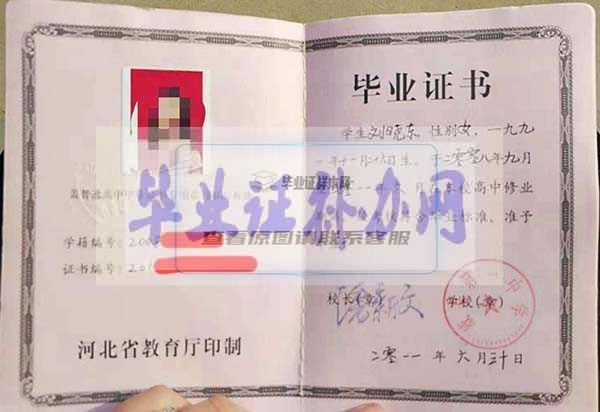 毕业证书
学生刘晓东 性别女，一九九
一年十一月十六日生。于二零零八年九月
一一年六月在本校高中修业
合毕业标准，准予
盖普通高中毕业
毕业证样本网
毕业证补办网
查看原图请联系客服
学籍编号：2008
证书编号：201
校长（章）
学校（章）
河北省教育厅印制
二零一一年六月三十日